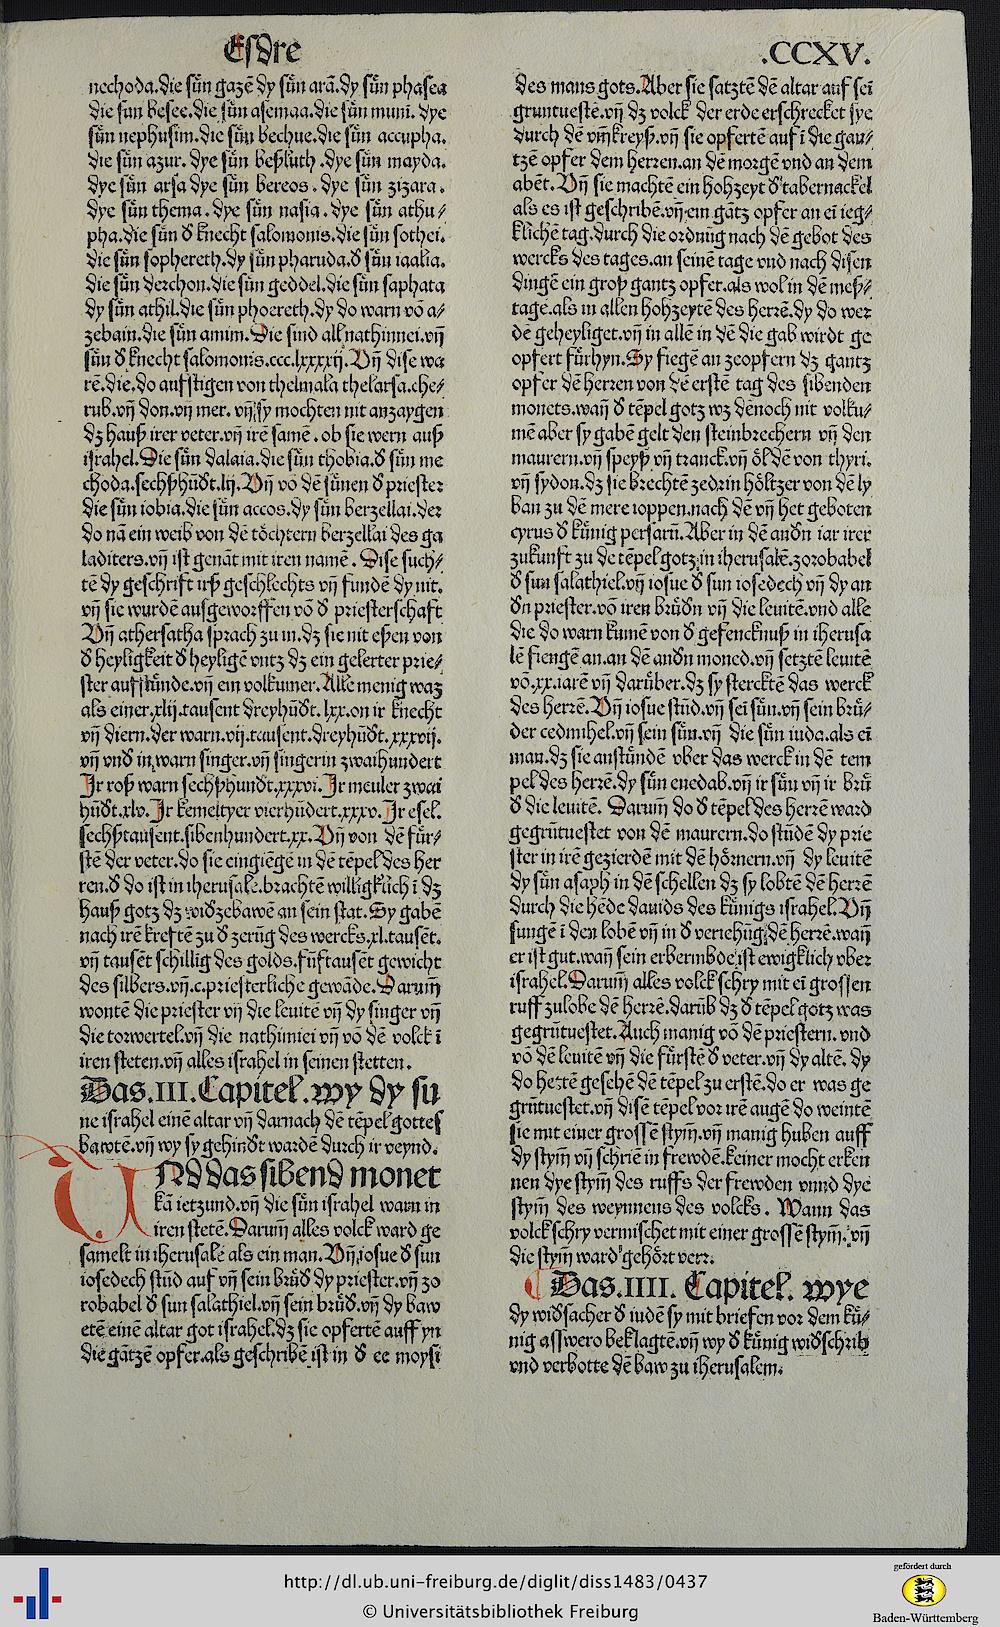 Esdre
.CCXV.
nechoda.die sün gazē dy sün arā.dy sün phasea
die sun besee.die sün asemaa.die sün muni. dye
sün nephusim.die sün bechue.die sün accupha.
die sün azur. dye sün beßluth .dye sün mayda.
dye sün arsa dye sün bereos. dye sün zizara.
dye sün thema. dye sün nasia. dye sün athu⸗
pha.die sün d̄ knecht salomonis.die sün sothei.
die sün sophereth.dy sün pharuda.d̄ sün iaalia.
die sün derchon.die sün geddel.die sün saphata
dy sün athil.die sün phoereth.dy do warn vō a⸗
zebaim.die sün amim.Die sind all nathinnei.vn̄
sün d̄ knecht salomonis.ccc.lxxxxij.Vn̄ dise wa
rē.die.do aufstigen von thelmala thelarsa.che⸗
rub.vn̄ don.vn̄ mer. vn̄ sy mochten nit anzaygen
dz hauß irer veter.vn̄ irē samē. ob sie wern auß
israhel.Die sün dalaia.die sün thobia.d̄ sün me
choda.sechßhūdt.lij.Vn̄ vō dē sünen d̄ priester
die sün iobia.die sün accos.dy sün berzellai.der
do nā ein weib von dē töchtern berzellai des ga
laditers.vn̄ ist genāt mit iren namē. Dise such⸗
tē dy geschrift irß geschlechts vn̄ fundē dy nit.
vn̄ sie wurdē ausgeworffen vō d̄ priesterschaft
Vn̄ athersatha sprach zu in.dz sie nit eßen von
d̄ heyligkeit d̄ heyligē vntz dz ein gelerter prie⸗
ster aufstünde.vn̄ ein volkumer.Alle menig waz
als einer.xlij.tausent dreyhūdt.lxx.on ir knecht
vn̄ diern.der warn.vij.tausent.dreyhūdt.xxxvij.
vn̄ vnd in warn singer.vn̄ singerin zwaihundert
Jr roß warn sechßhundt.xxxvi.Jr meuler zwai
hūdt.xlv.Jr kemeltyer vierhūdert.xxxv.Jr esel.
sechßtausent.sibenhundert.xx.Vn̄ von dē für⸗
stē der veter.do sie eingiēgē in dē tēpel des her
ren.d̄ do ist in iherusalē.brachtē williglich ī dz
hauß gotz dz widzebawē an sein stat.Sy gabē
nach irē kreftē zu d̄ zerūg des wercks.xl.tausēt.
vn̄ tausēt schillīg des golds.fünftausēt gewicht
des silbers.vn̄.c.priesterliche gewāde.Darum̄
wontē die priester vn̄ die leuitē vn̄ dy singer vn̄
die torwertel.vn̄ die nathimiei vn̄ vō dē volck ī
iren steten.vn̄ alles israhel in seinen stetten.
Das.III.Capitel.wy dy sü
ne israhel einē altar vn̄ darnach dē tēpel gottes
bawtē.vn̄ wy sy gehindt wardē durch ir veynd.
Und das sibend monet
kā ietzund.vn̄ die sün israhel warn in
iren stetē.Darum̄ alles volck ward ge
samelt in iherusalē als ein man.Vn̄ iosue d̄ sun
iosedech stūd auf vn̄ sein brüd̄ dy priester.vn̄ zo
robabel d̄ sun salathiel.vn̄ sein brüd̄.vn̄ dy baw
etē einē altar got israhel.dz sie opfertē auff yn
die gātzē opfer.als geschribē ist in d̄ ee moysi
des mans gots.Aber sie satztē dē altar auf sei
gruntuestē.vn̄ dz volck der erde erschrecket sye
durch dē vm̄kreyß.vn̄ sie opfertē auf ī die gan⸗
tzē opfer dem herren.an dē morgē vnd an dem
abēt. Vn̄ sie machtē ein hohzeyt d̄ tabernackel
als es ist geschribē.vn̄ ein gātz opfer an eī ieg⸗
klichē tag.durch die ordnūg nach dē gebot des
wercks des tages.an seinē tage vnd nach disen
dingē ein groß gantz opfer.als wol in dē meß⸗
tage.als in allen hohzeytē des herrē.dy do wer
dē geheyliget.vn̄ in allē in dē die gab wirdt ge
opfert fürhyn.Sy fiegē an zeopfern dz gantz
opfer dē herren von dē erstē tag des sibenden
monets.wan̄ d̄ tēpel gotz wz dēnoch nit volku⸗
mē aber sy gabē gelt den steinbrechern vn̄ den
maurern.vn̄ speyß vn̄ tranck.vn̄ öl dē von thyri.
vn̄ sydon.dz sie brechtē zedrin höltzer von dē ly
ban zu dē mere ioppen.nach dē vn̄ het geboten
cyrus d̄ künig persarn̄.Aber in dē andn̄ iar irer
zukunft zu de tēpel gotz in iherusalē.zorobabel
d̄ sun salathiel.vn̄ iosue d̄ sun iosedech vn̄ dy an
dn̄ priester.vō iren brüdn̄ vn̄ die leuitē.vnd alle
die do warn kumē von d̄ gefencknuß in iherusa
lē fiengē an.an dē andn̄ moned.vn̄ setztē leuitē
vō.xx.iarē vn̄ darüber.dz sy sterckte das werck
des herrē.Vn̄ iosue stūd.vn̄ sei sün.vn̄ sein brü⸗
der cedmihel.vn̄ sein sün.vn̄ die sün iuda.als eī
man.dz sie anstündē vber das werck in dē tem
pel des herrē.dy sün enedab.vn̄ ir sün vn̄ ir brü
d̄ die leuitē. Darum̄ do d̄ tēpel des herrē ward
gegrūtuestet von dē maurern.do stūdē dy prie
ster in irē gezierdē mit dē hörnern.vn̄ dy leuitē
dy sün asaph in dē schellen dz sy lobtē dē herrē
durch die hēde dauids des künigs israhel.Vn̄
sungē ī den lobē vn̄ in d̄ veriehūg dē herrē.wan̄
er ist gut.wan̄ sein erbermbde ist ewigklich vber
israhel.Darum̄ alles volck schry mit eī grossen
ruff zulobe dē herrē.darüb dz d̄ tēpel gotz was
gegrūtuestet.Auch manig vō dē priestern. vnd
vō dē leuitē vn̄ die fürstē d̄ veter.vn̄ dy altē. dy
do hettē gesehē dē tēpel zu erstē.do er was ge
grūtuestet.vn̄ disē tēpel vor irē augē do weintē
sie mit einer grossē stym̄.vn̄ manig huben auff
dy stym̄ vn̄ schriē in frewdē.keiner mocht erken
nen dye stym̄ des ruffs der frewden vnnd dye
stym̄ des weynnens des volcks. Wann das
volck schry vermischet mit einer grossē stym̄. vn̄
die stym̄ ward gehört verr.
Das.IIII. Capitel. wye
dy widsacher d̄ iudē sy mit briefen vor dem kü⸗
nig asswero beklagtē.vn̄ wy d̄ künig widschrib
vnd verbotte dē baw zu iherusalem.
http://dl.ub.uni-freiburg.de/diglit/diss1483/0437
© Universitätsbibliothek Freiburg
gefördert durch
Baden-Württemberg